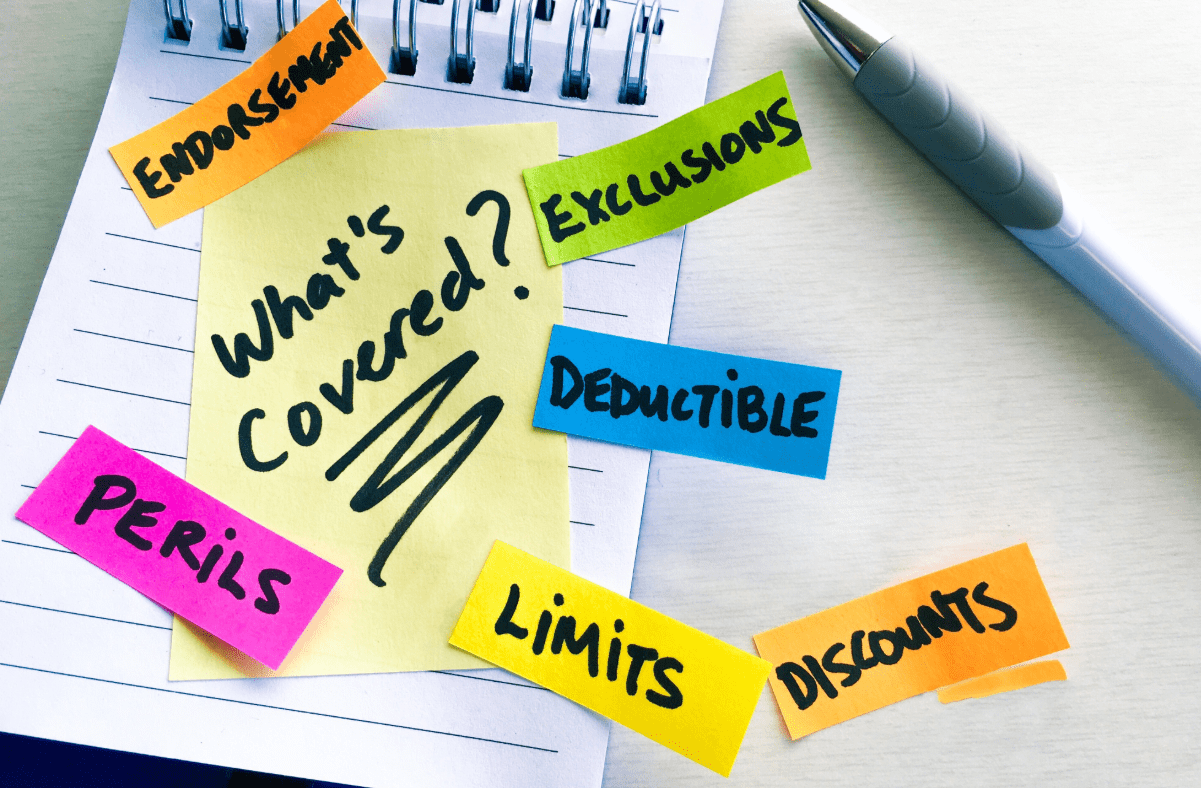 ENDORSEMENT
EXCLUSIONS
What's
Covered?
DEDUCTIBLE
PERILS
LIMITS
DISCOUNTS